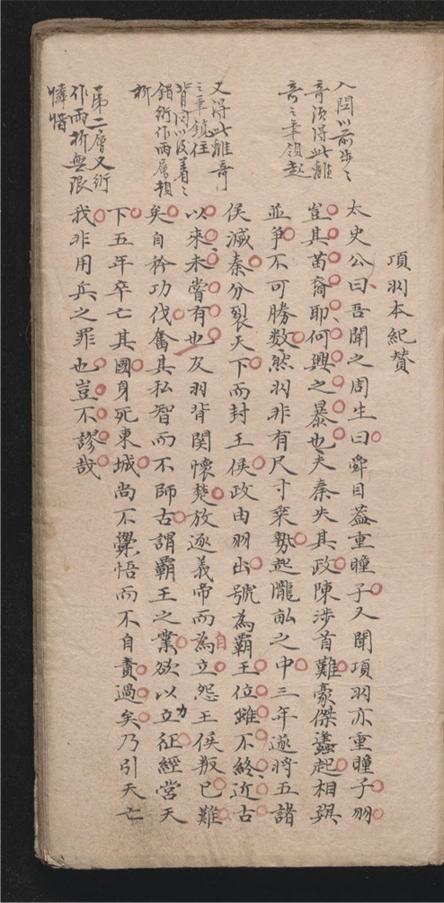 項羽本紀贊
太史公曰吾聞之周生曰舜目蓋重瞳子又聞項羽亦重瞳子羽
豈其苗裔耶何興之暴也夫秦失其政陳涉首難豪傑蠭起相與
並爭不可勝數然羽非有尺寸乘勢起隴畝之中三年遂將五諸
侯滅秦分裂天下而封王侯政由羽出號為霸王位雖不終近古
以來未嘗有也及羽背関懷楚放逐義帝而為自立怨王侯叛已難
矣自矜功伐奮其私智而不師古謂霸王之業欲以立力征經營天
下五年卒亡其國身死東城尚不覺悟而不自責過矣乃引天亡
我非用兵之罪也豈不謬哉
入関以前步々
奇須得此離
奇之筆領起
又得此離奇
之筆鎮住
背関以後着々
錯衍作兩層頓
折
第二層又衍
作兩折無限
憐惜